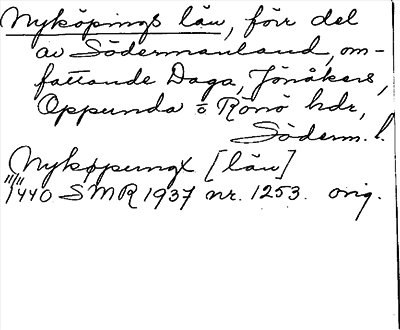 Nyköpings län, förr del
av Södermanland, om-
fattande Daga, Jönåkers,
Oppunda o Rönö hdr,
Söderm. l.
Nykøpungx [län]
11/11 1440 SMR 1937 nr. 1253. orig.